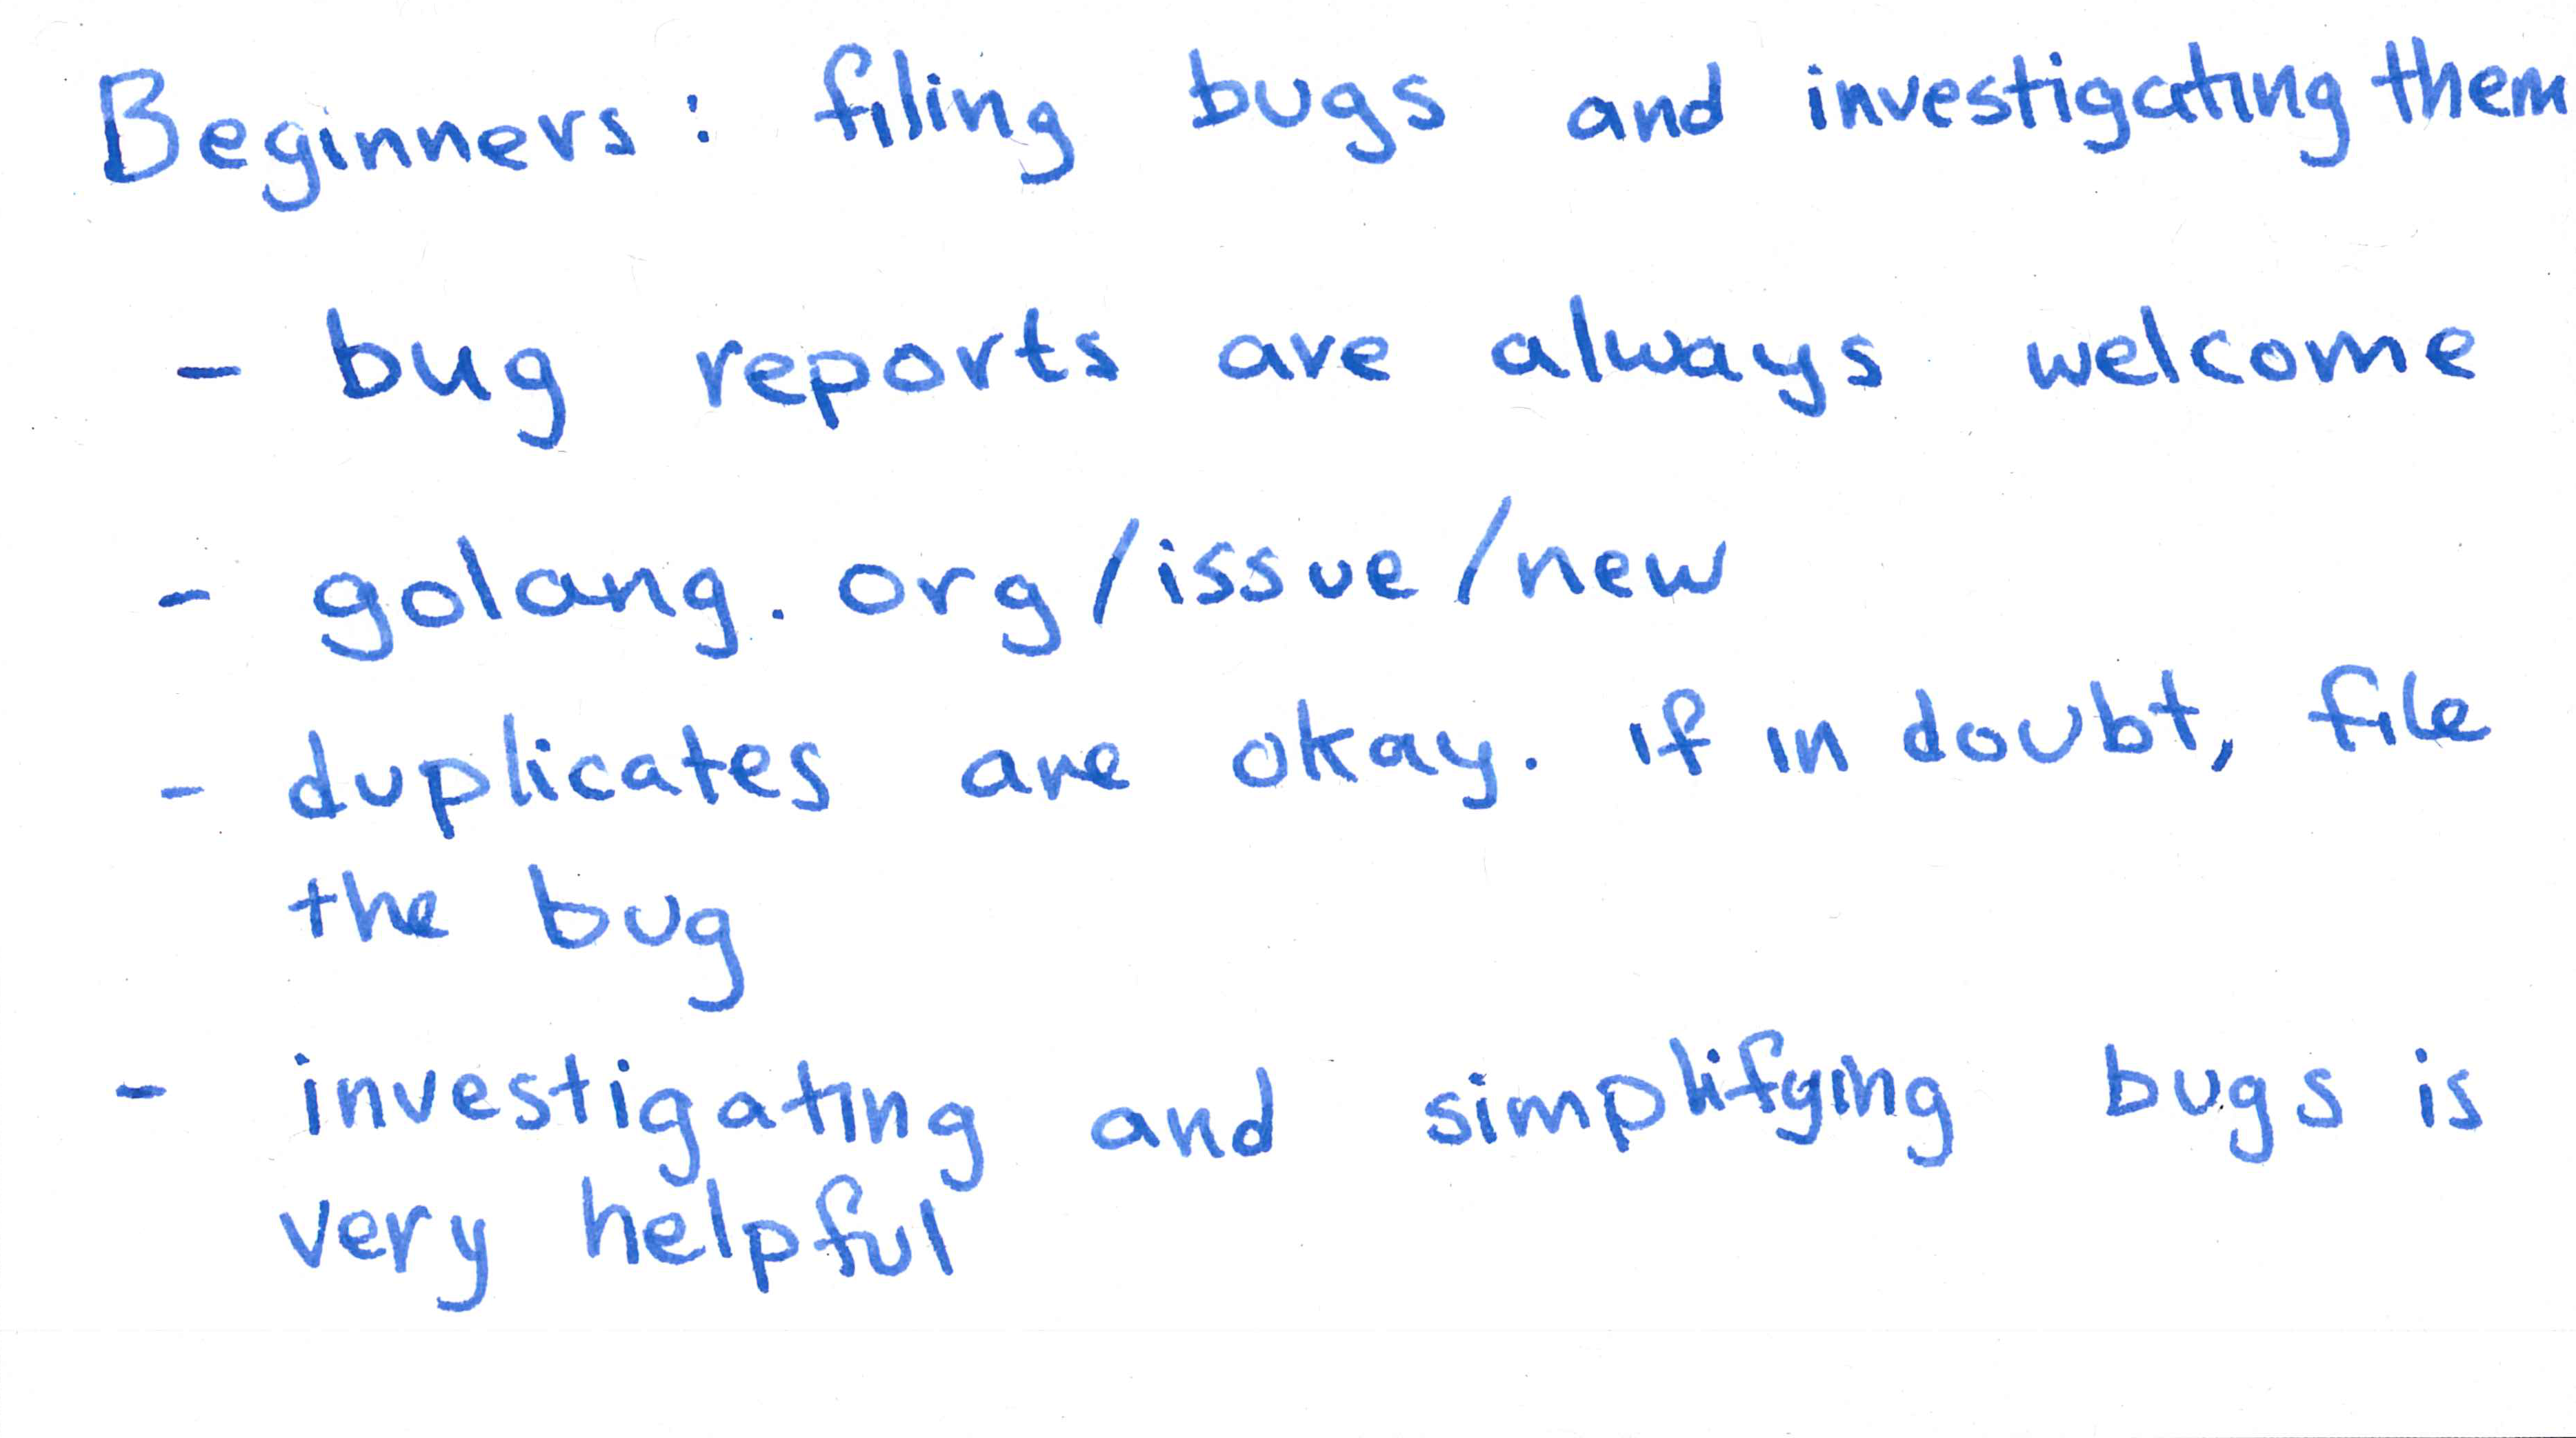 Beginners: filing bugs and investigating them
- bug reports are always welcome
- golang.org/issue/new
- duplicates are okay. if in doubt, file
the bug
- investigating and simplifying bugs is
very helpful